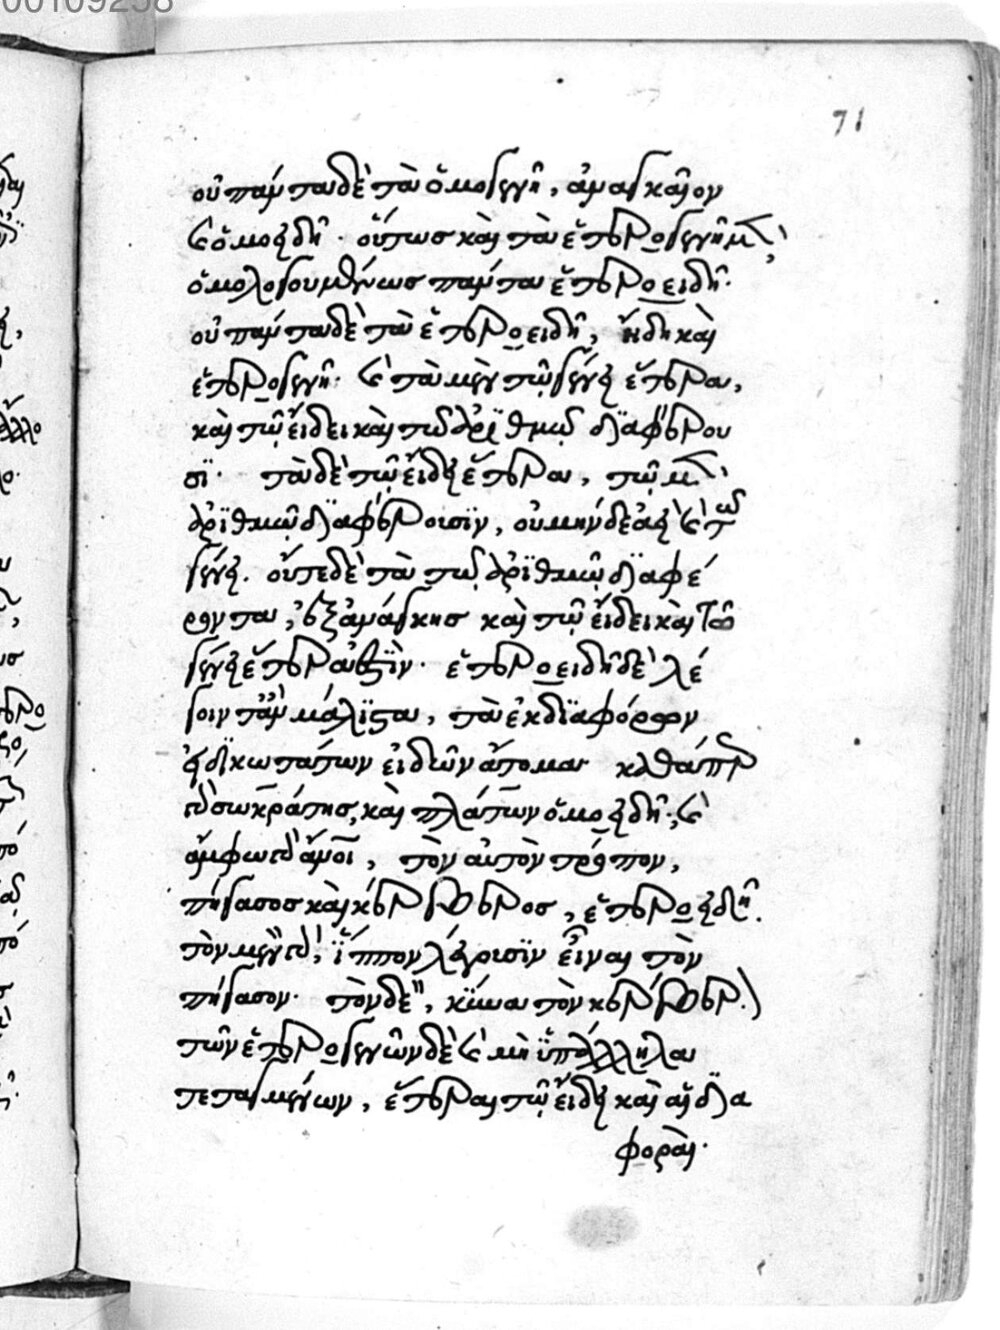 00109258
71
οὐ πάντα δὲ τὰ ὁμογενῆ, ἀναγκαῖον
καὶ ὁμοειδῆ· οὕτως καὶ τὰ ἑτερογενῆ μὲν,
ὁμολογουμένως πάντα ἑτεροειδῆ·
οὐ πάντα δὲ τὰ ἑτεροειδῆ, ἤδη καὶ
ἑτερογενῆ· καὶ τὰ μὲν τῷ γένει ἕτερα,
καὶ τῷ εἴδει καὶ τῷ ἀρϊθμῷ δϊαφέρου
σϊ· τὰ δὲ τῷ εἴδει ἕτερα, τῷ μὲν
ἀρϊθμῷ δϊαφέρουσϊν, οὐ μὴν δὲ ἀεὶ καὶ τῷ
γένει. οὔτε δὲ τὰ τῷ ἀρϊθμῷ δϊαφέ
ροντα, ἐξ ἀνάγκης καὶ τῷ εἴδει καὶ τῷ
γένει ἕτερα ἐστϊν· ἑτεροειδῆ δὲ λέ
γοιντ' ἂν μάλϊστα, τὰ ἐκ δϊαφόρων
εἰδϊκωτάτων εἰδῶν ἄτομα· καθάπερ
σωκράτης, καὶ πλάτων ὁμοειδῆ·, καὶ
ἄμφω ἄνοι, τὸν αὐτὸν τρόπον,
πήγασος καὶ κέρβερος, ἑτεροειδῆ.
τὸν μὲν ἵππον λέγουσϊν εἶναι τὸν
πήγασον· τὸν δὲ, κύνα τὸν κέρβερον·
τῶν ἑτερογενῶν δὲ καὶ μὴ ὑπάλληλα
τεταγμένων, ἕτεραι τῷ εἴδει καὶ αἱ δϊα
φοραὶ·